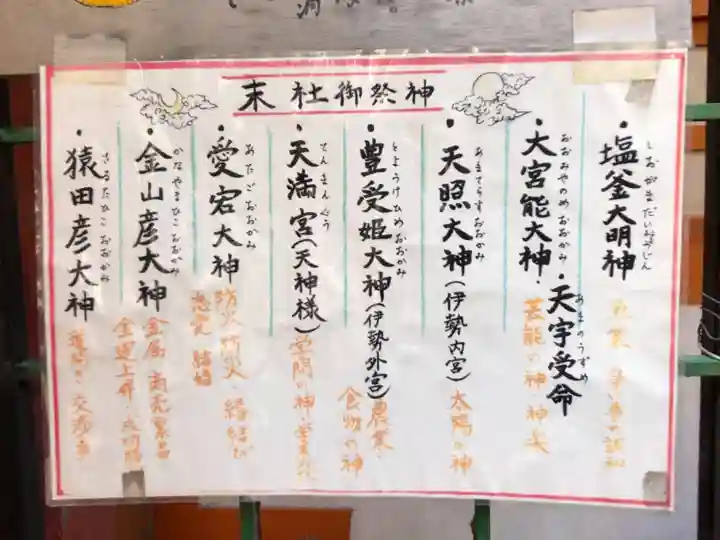 末社御祭神
・塩釜大明神
しおがまだいみょうじん
・大宮能大神・天宇受命
おおみやのめおおかみ
あまのうずめ
芸能の神・神楽
・天照大神(伊勢内宮)
あまてらすおおかみ
太陽の神
・豊受姫大神(伊勢外宮)
とようけひめおおかみ
農業・
食物の神
・天満宮(天神様)
てんまんぐう
学問の神・
・愛宕大神
あたごおおかみ
防火・縁結び
・金山彦大神
かなやまひこおおかみ
金属・商売繁昌
金運上昇・
・猿田彦大神
さるたひこおおかみ